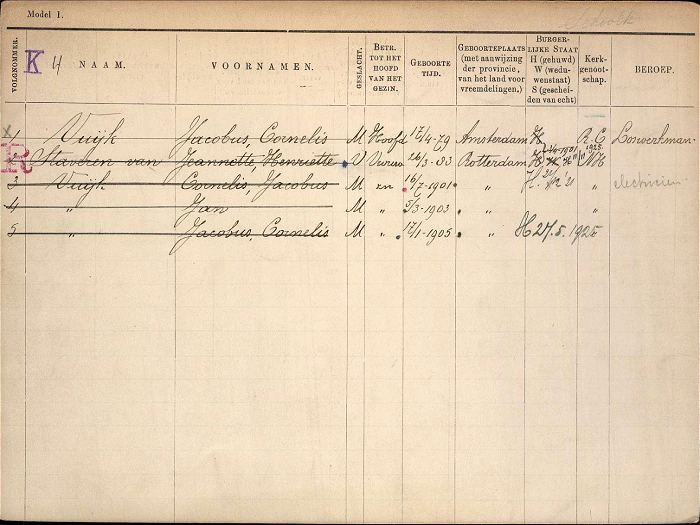 Model 1.
K 4
VOLGNOMMER.
NAAM.
VOORNAMEN.
GESLACHT.
BETR. TOT HET HOOFD VAN HET GEZIN.
GEBOORTE TIJD.
GEBOORTEPLAATS (met aanwijzing der provincie, van het land voor vreemdelingen.)
BURGERLIJKE STAAT H (gehuwd) W (weduwenstaat) S (gescheiden van echt)
Kerkgenootschap.
BEROEP.
1 Vuijk Jacobus, Cornelis M Hoofd 17/4-79 Amsterdam H R.C. Loswerkman
R
2 Staveren van Jeannette, Henriette V Vrouw 26/3-83 Rotterdam H NH
3 Vuijk Cornelis, Jacobus M zn 16/7-1901 " H. " electricien
4 " Jan M " 5/3-1903 " "
5 " Jacobus, Cornelis M " 17/1-1905 " H 27.5.1925 "